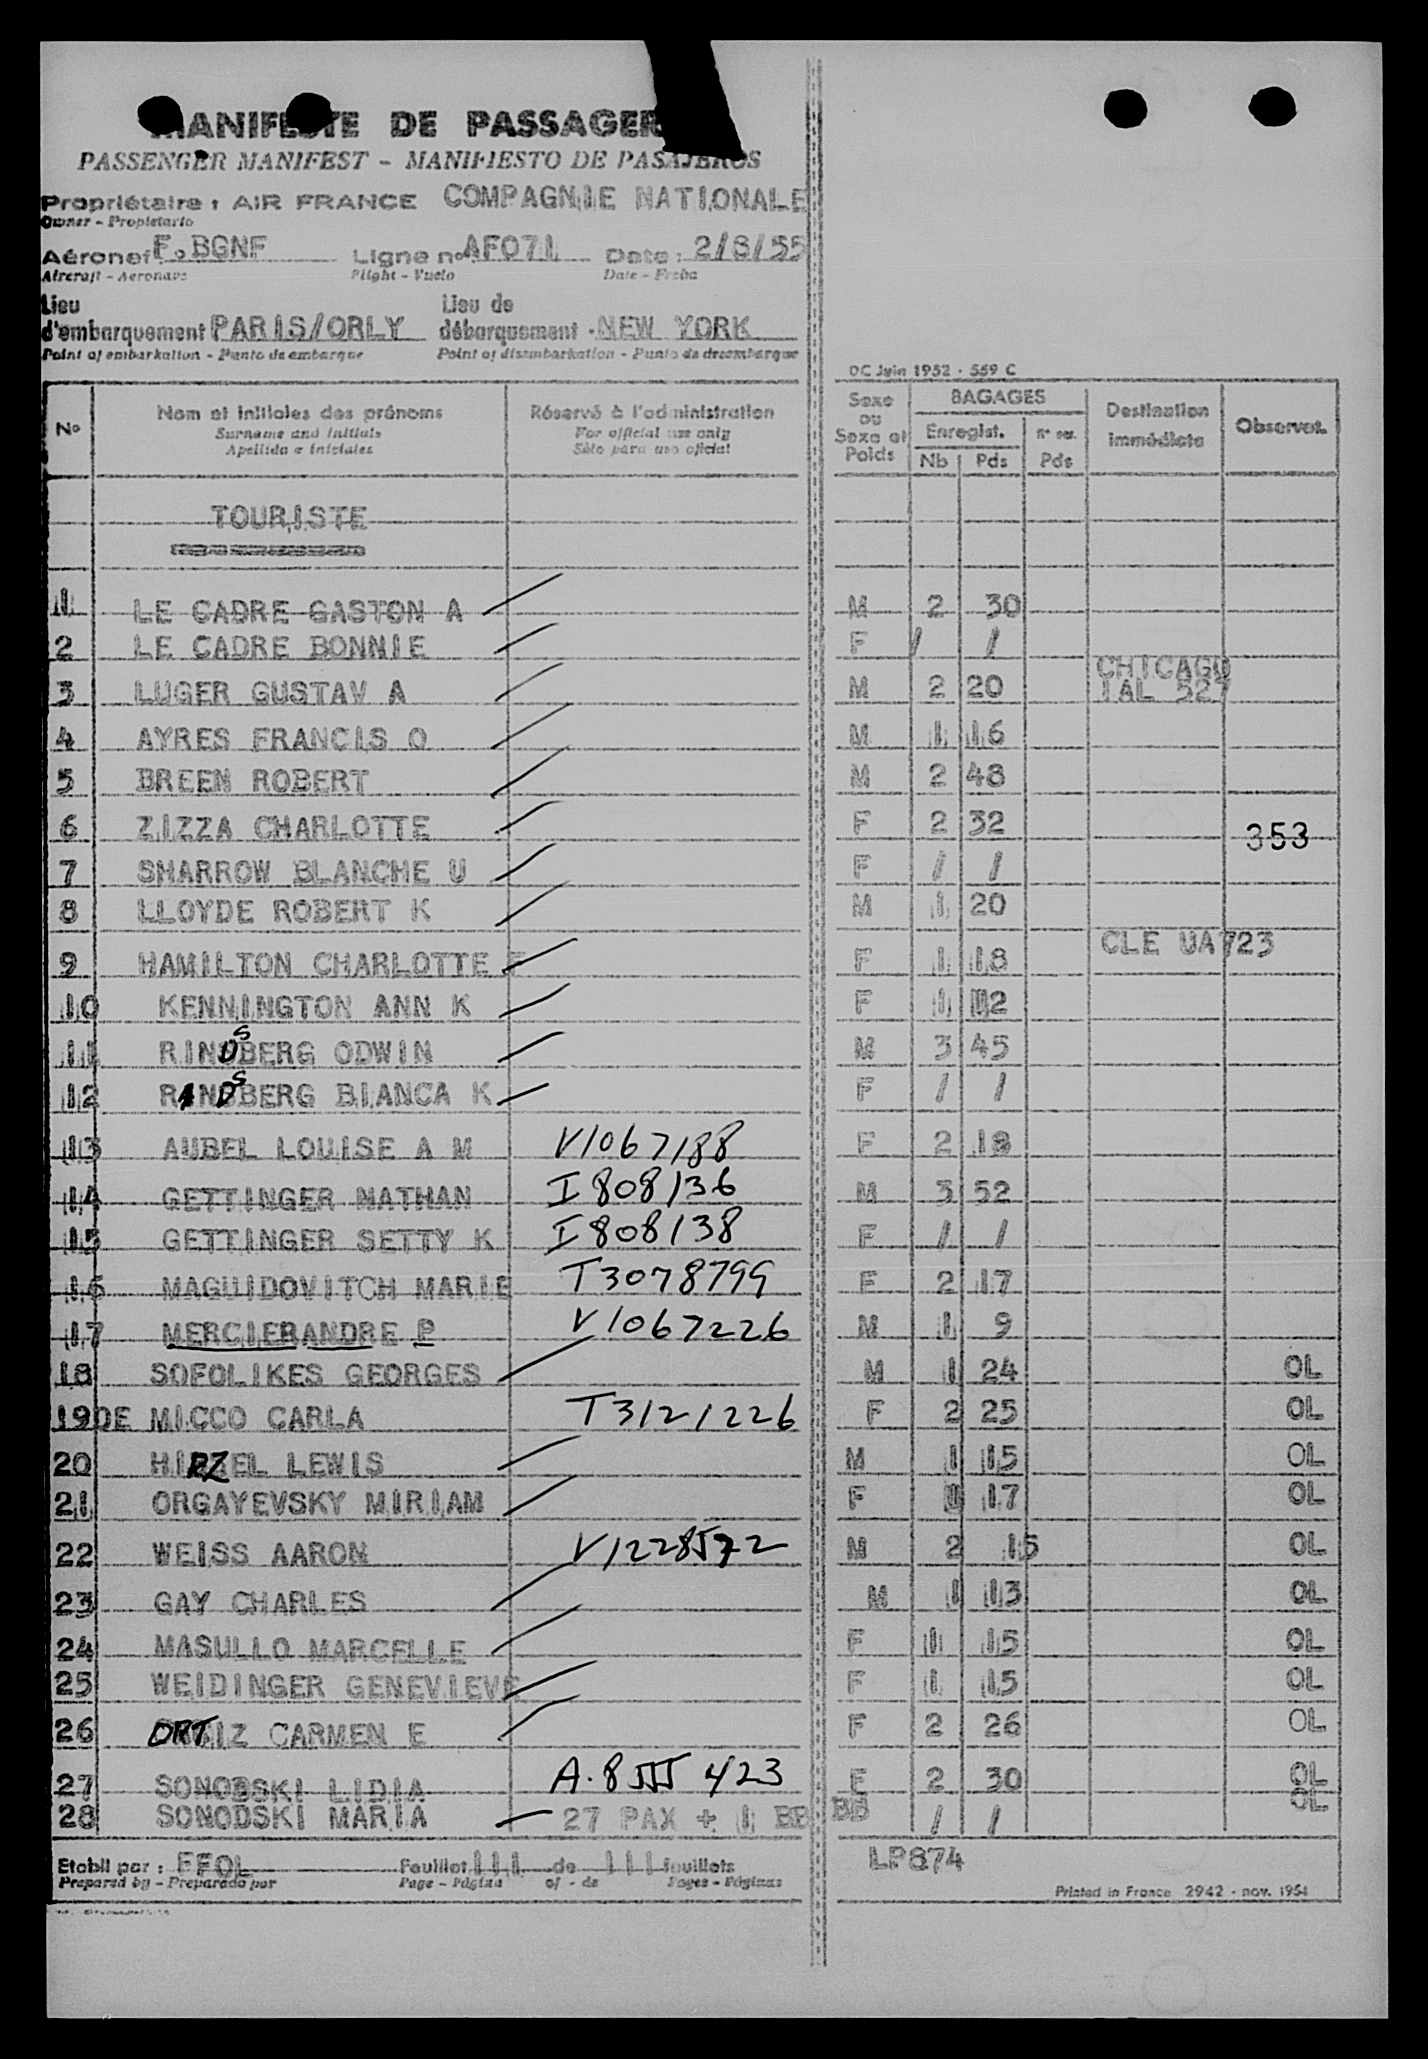 MANIFESTE DE PASSAGER
PASSENGER MANIFEST - MANIFIESTO DE PASAJEROS
Propriétaire : AIR FRANCE COMPAGNIE NATIONALE
Owner - Propietario
Aéronef F.BGNF Ligne no AF071 Date : 2/8/55
Aircraft - Aeronave Flight - Vuelo Date - Fecha
Lieu d'embarquement PARIS/ORLY Lieu de débarquement - NEW YORK
Point of embarkation - Punto de embarque Point of disembarkation - Punto de desembarque
OC Juin 1952 - 559 C
No Nom et initiales des prénoms Réservé à l'administration Sexe ou Sexe et Poids BAGAGES Destination immédiate Observat.
Surname and initials For official use only Enregist.
Apellido e iniciales Sólo para uso oficial Nb Pds Pds
TOURISTE
1 LE CADRE GASTON A M 2 30
2 LE CADRE BONNIE F / /
3 LUGER GUSTAV A M 2 20 CHICAGO IAL 527
4 AYRES FRANCIS O M 1 16
5 BREEN ROBERT M 2 48
6 ZIZZA CHARLOTTE F 2 32 353
7 SHARROW BLANCHE U F / /
8 LLOYDE ROBERT K M 1 20
9 HAMILTON CHARLOTTE F F 1 18 CLE UA723
10 KENNINGTON ANN K F 1 12
11 RINDSBERG ODWIN M 3 45
12 RINDSBERG BIANCA K F / /
13 AUBEL LOUISE A M V1067188 F 2 18
14 GETTINGER NATHAN I 808136 M 3 52
15 GETTINGER SETTY K I 808138 F / /
16 MAGUIDOVITCH MARIE T3078799 F 2 17
17 MERCIERANDRE P V1067226 M 1 9
18 SOFOLIKES GEORGES M 1 24 OL
19 DE MICCO CARLA T3121226 F 2 25 OL
20 HIRZEL LEWIS M 1 15 OL
21 ORGAYEVSKY MIRIAM F 1 17 OL
22 WEISS AARON V1228572 M 2 15 OL
23 GAY CHARLES M 1 13 OL
24 MASULLO MARCELLE F 1 15 OL
25 WEIDINGER GENEVIEVE F 1 15 OL
26 ORTIZ CARMEN E F 2 26 OL
27 SONOBSKI LIDIA A.8555 423 F 2 30 OL
28 SONODSKI MARIA 27 PAX + 1 BB BB / / OL
Etabli par : FFOL Feuillet 111 de 111 feuillets LP874
Prepared by - Preparado por Page - Página of - de Pages - Páginas Printed in France 2942 - nov. 1954